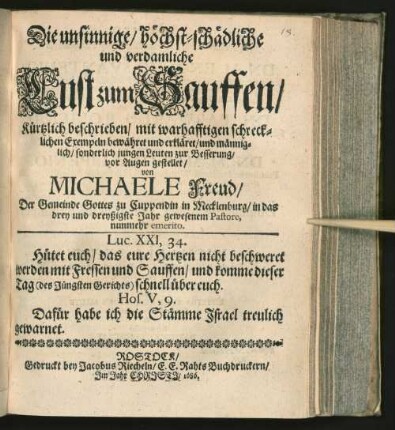 18.
Die unsinnige/ höchst-schädliche
und verdamliche
Lust zum Sauffen/
Kürtzlich beschrieben/ mit warhafftigen schreck-
lichen Exempeln bewähret und erkläret/ und männig-
lich/ sonderlich jungen Leuten zur Besserung/
vor Augen gestellet/
von
MICHAELE Freud/
Der Gemeinde Gottes zu Cuppendin in Mecklenburg/ in das
drey und dreyßigste Jahr gewesenem Pastore,
nunmehr emerito.
Luc. XXI, 34.
Hütet euch/ das eure Hertzen nicht beschweret
werden mit Fressen und Sauffen/ und komme dieser
Tag (des Jüngsten Gerichts) schnell über euch.
Hos. V, 9.
Dafür habe ich die Stämme Israel treulich
gewarnet.
ROSTOCK/
Gedruckt bey Jacobus Riecheln/ E. E. Rahts Buchdruckern/
Im Jahr CHRISTI/ 1686.